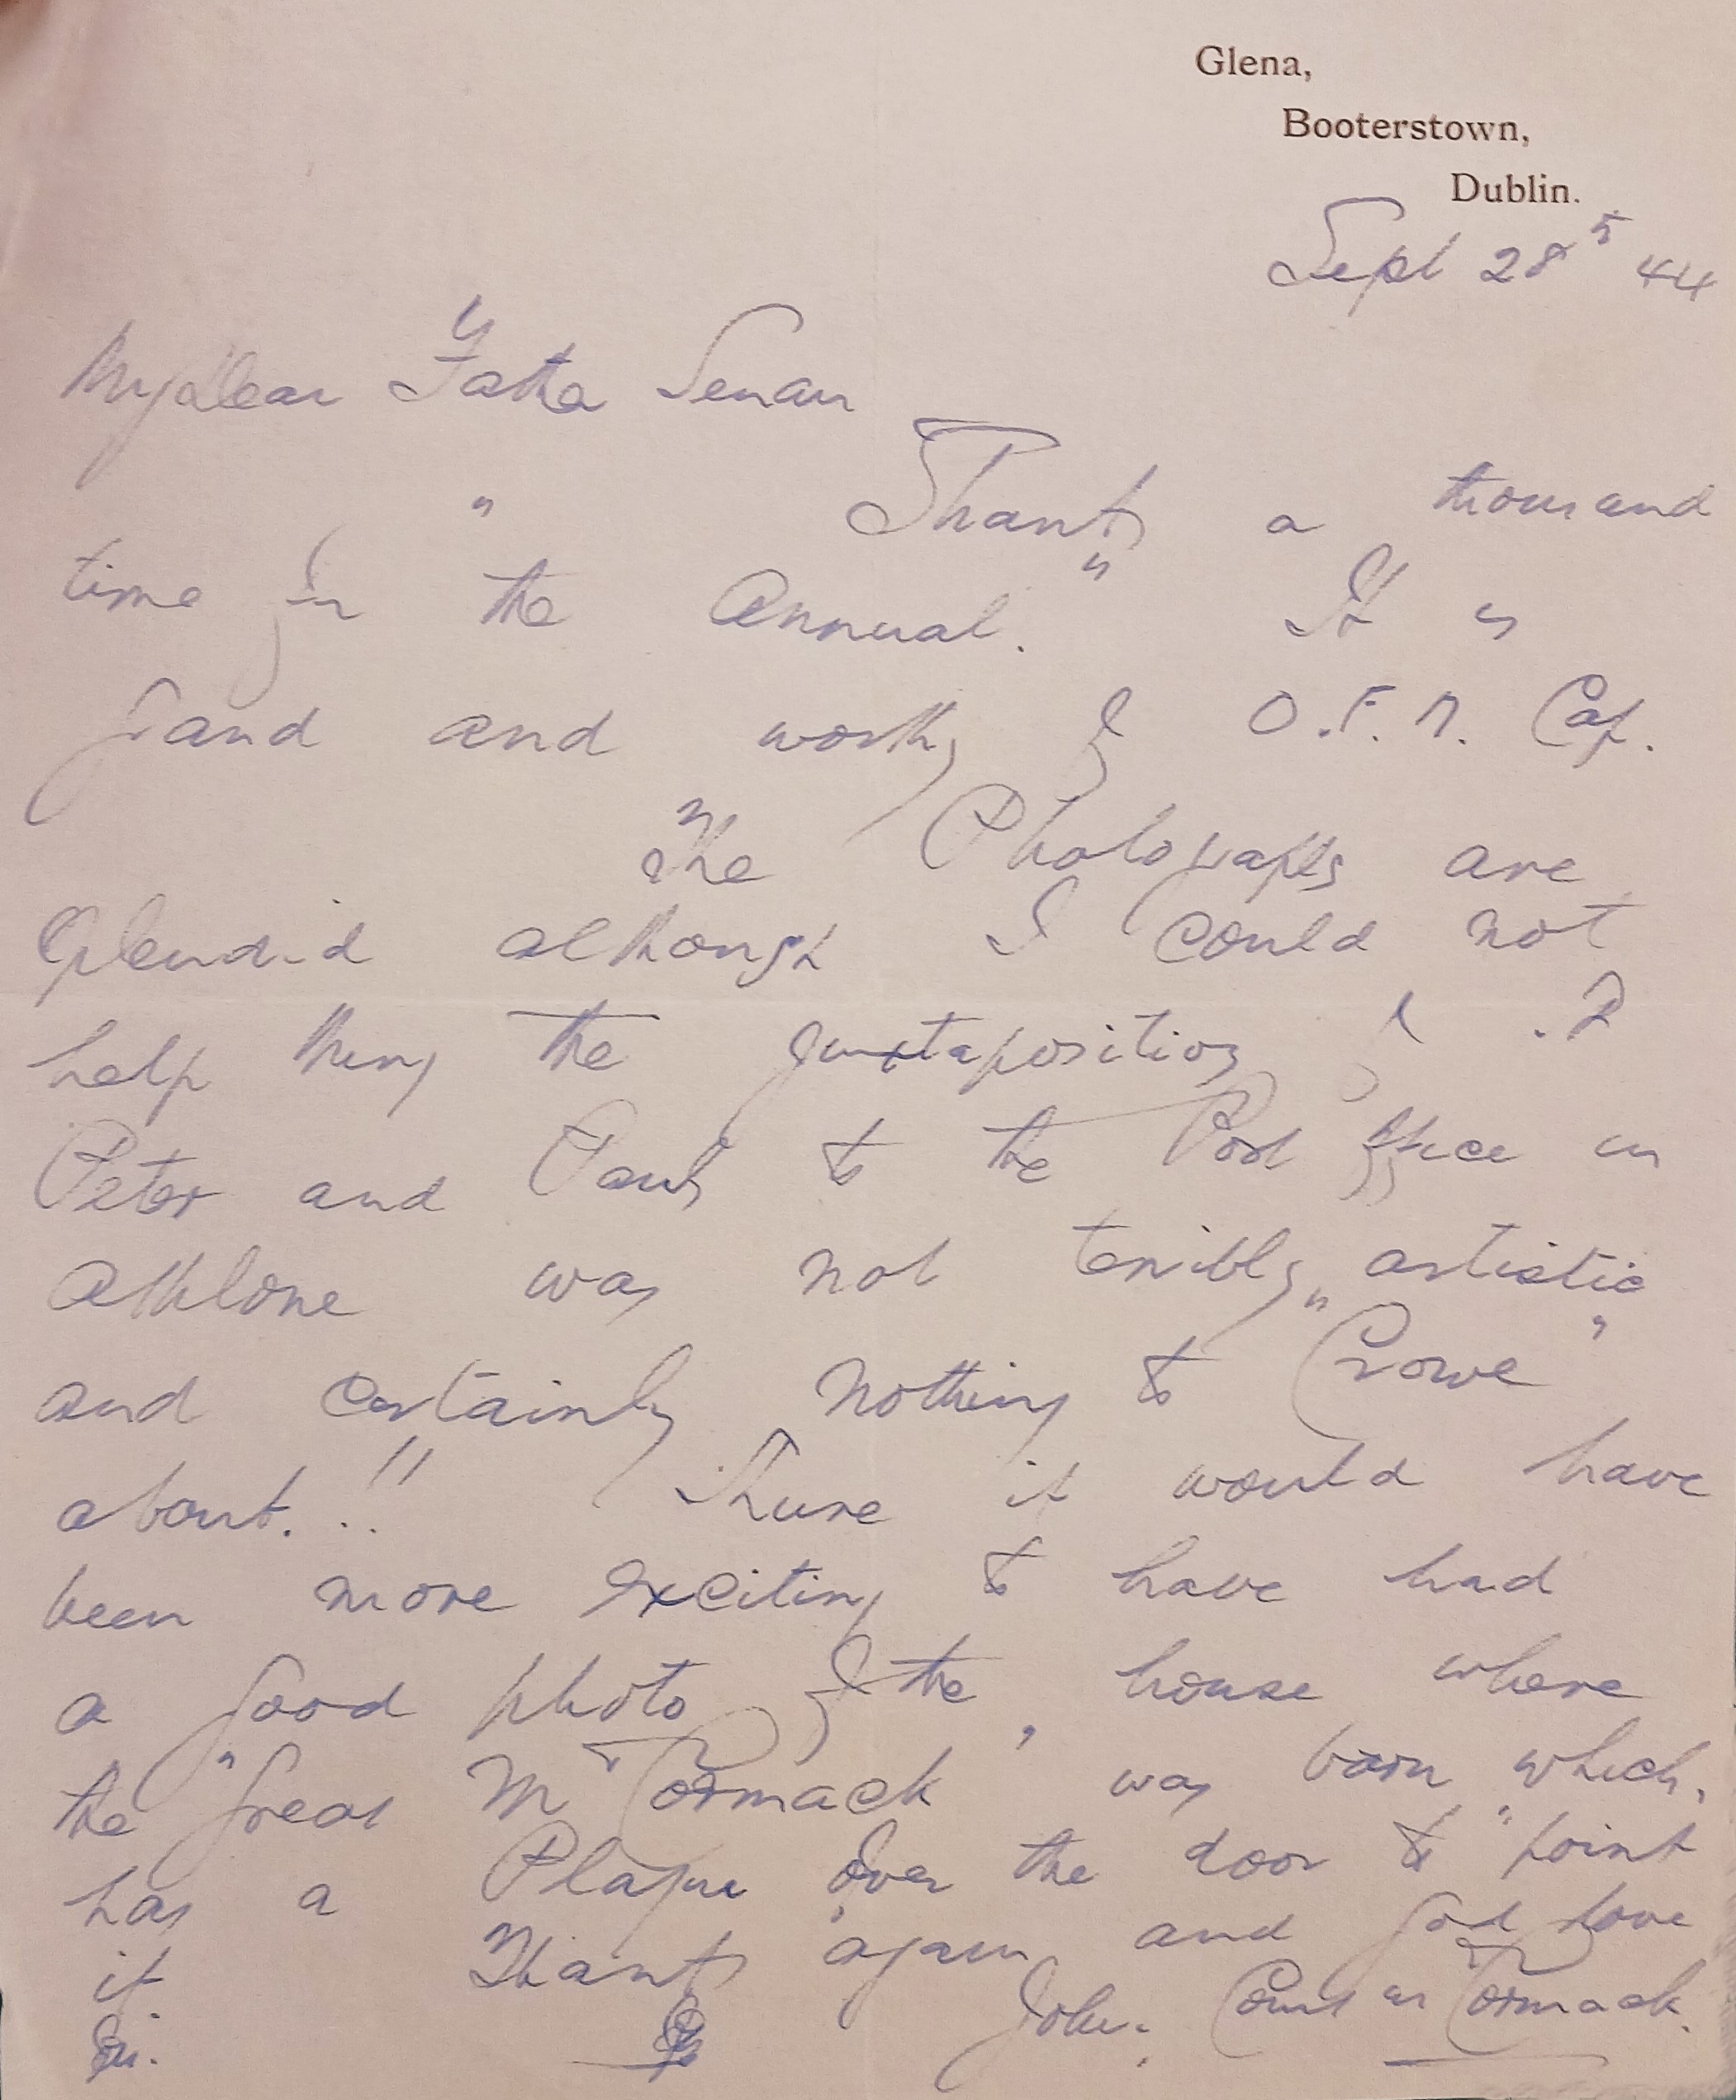 Glena,
Booterstown,
Dublin.
Sept 28th 44
My Dear Father Senan
Thanks a thousand
time for "the Annual." It is
grand and worthy of O.F.M. Cap.
The Photographs are
splendid although I could not
help thing the juxtaposition of
Peter and Paul's to the Post Office in
Athlone was not terribly artistic
and certainly nothing to "Crowe"
about..!! Shure it would have
been more exciting to have had
a good photo of the house where
the "great McCormack" was born which
has a Plaque over the door to "point
it. Thanks again and God love
John. Count McCormack.